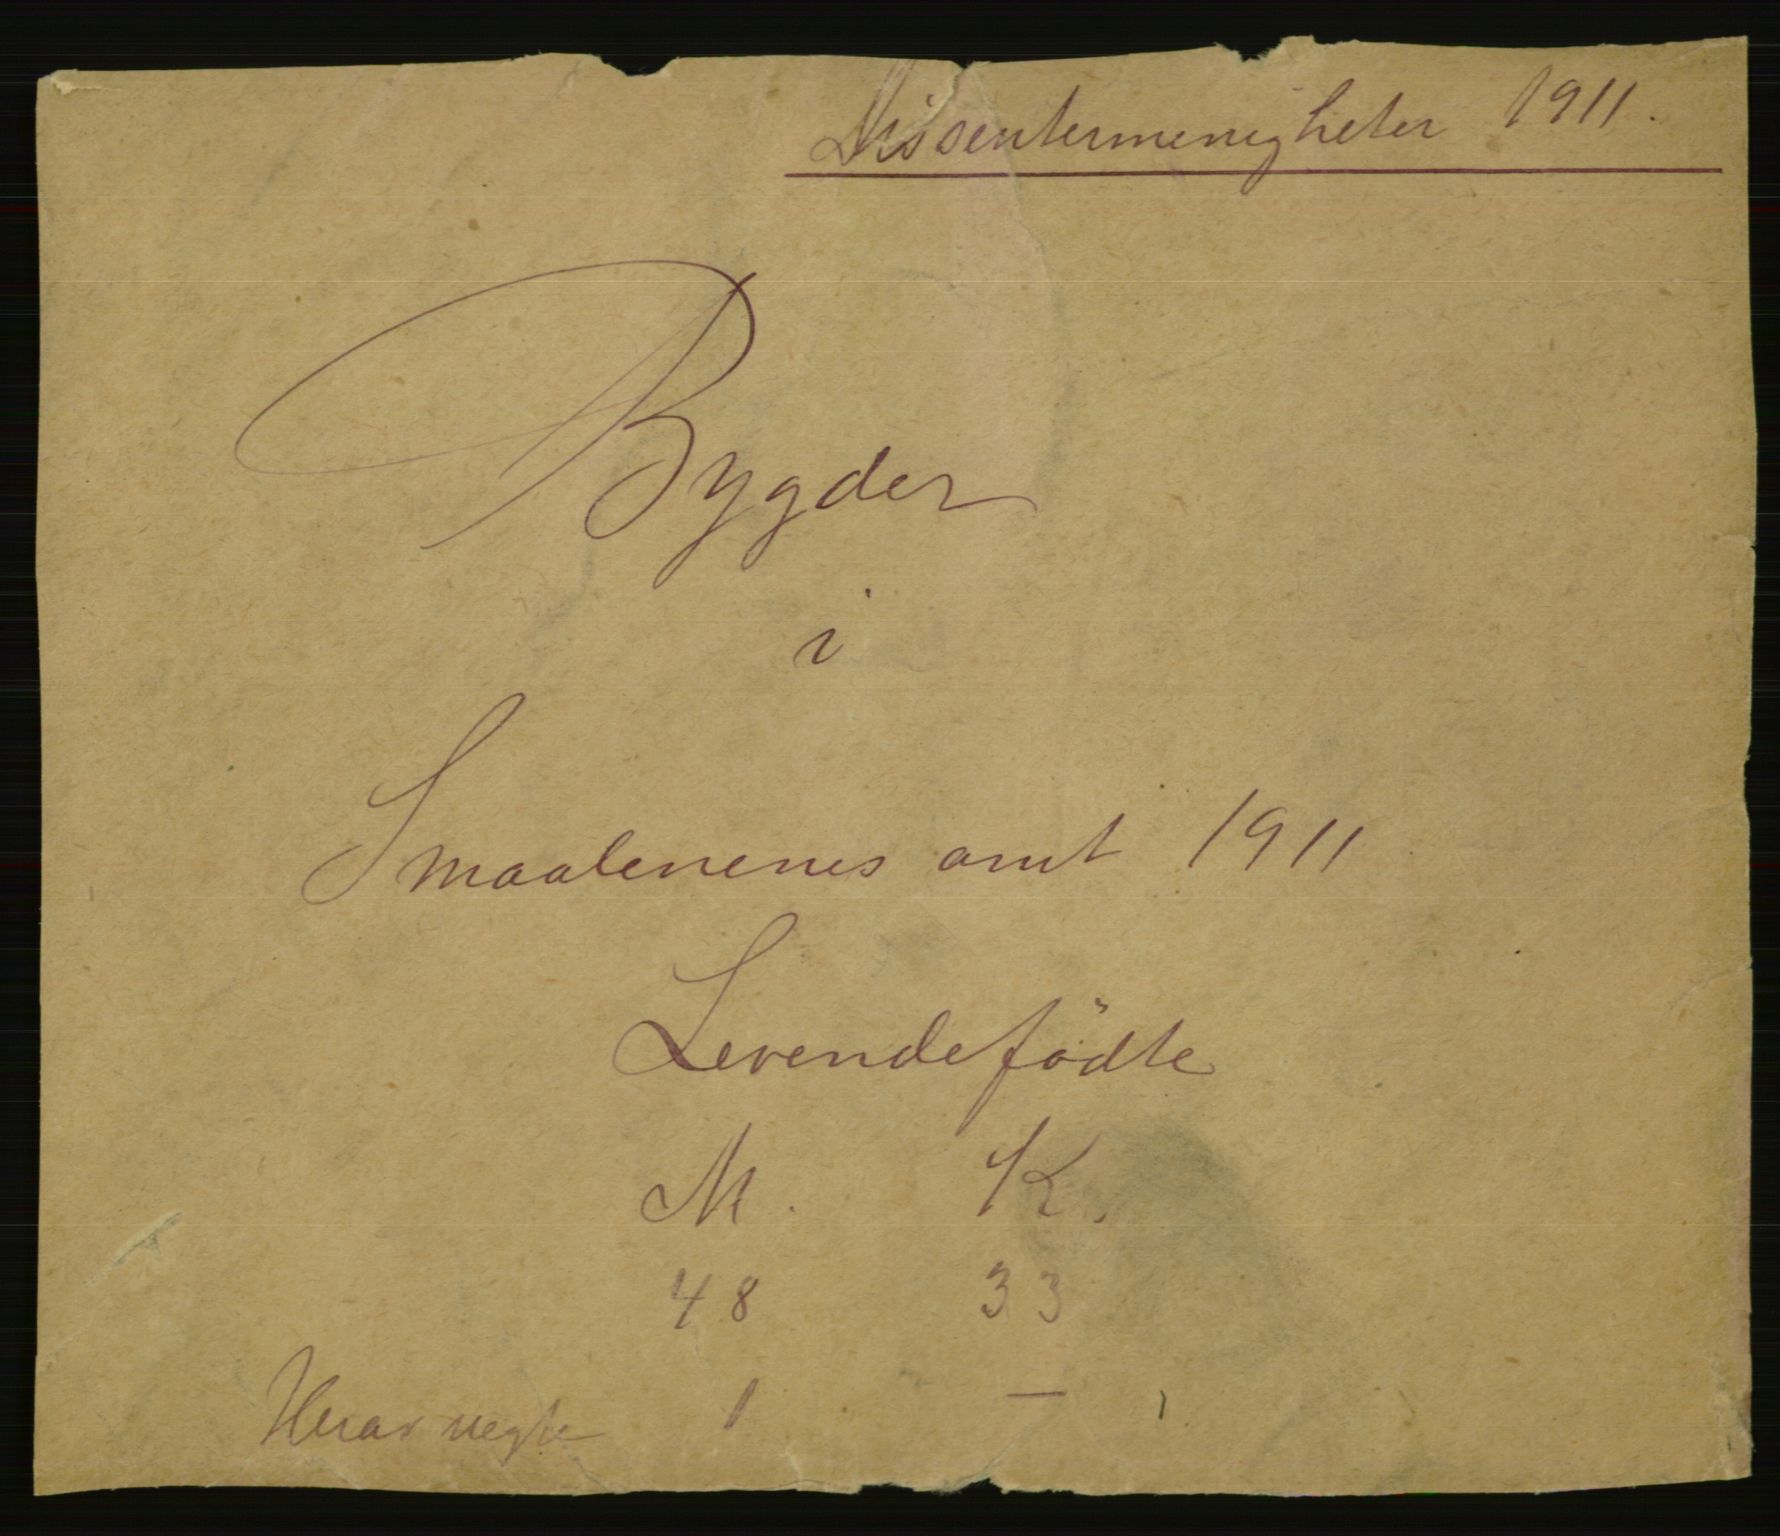 Dissentermenigheter 1911.
Bygder
i
Smaalenenes amt 1911
Levendefödte
M. K.
48 33
Herav uegte 1 —